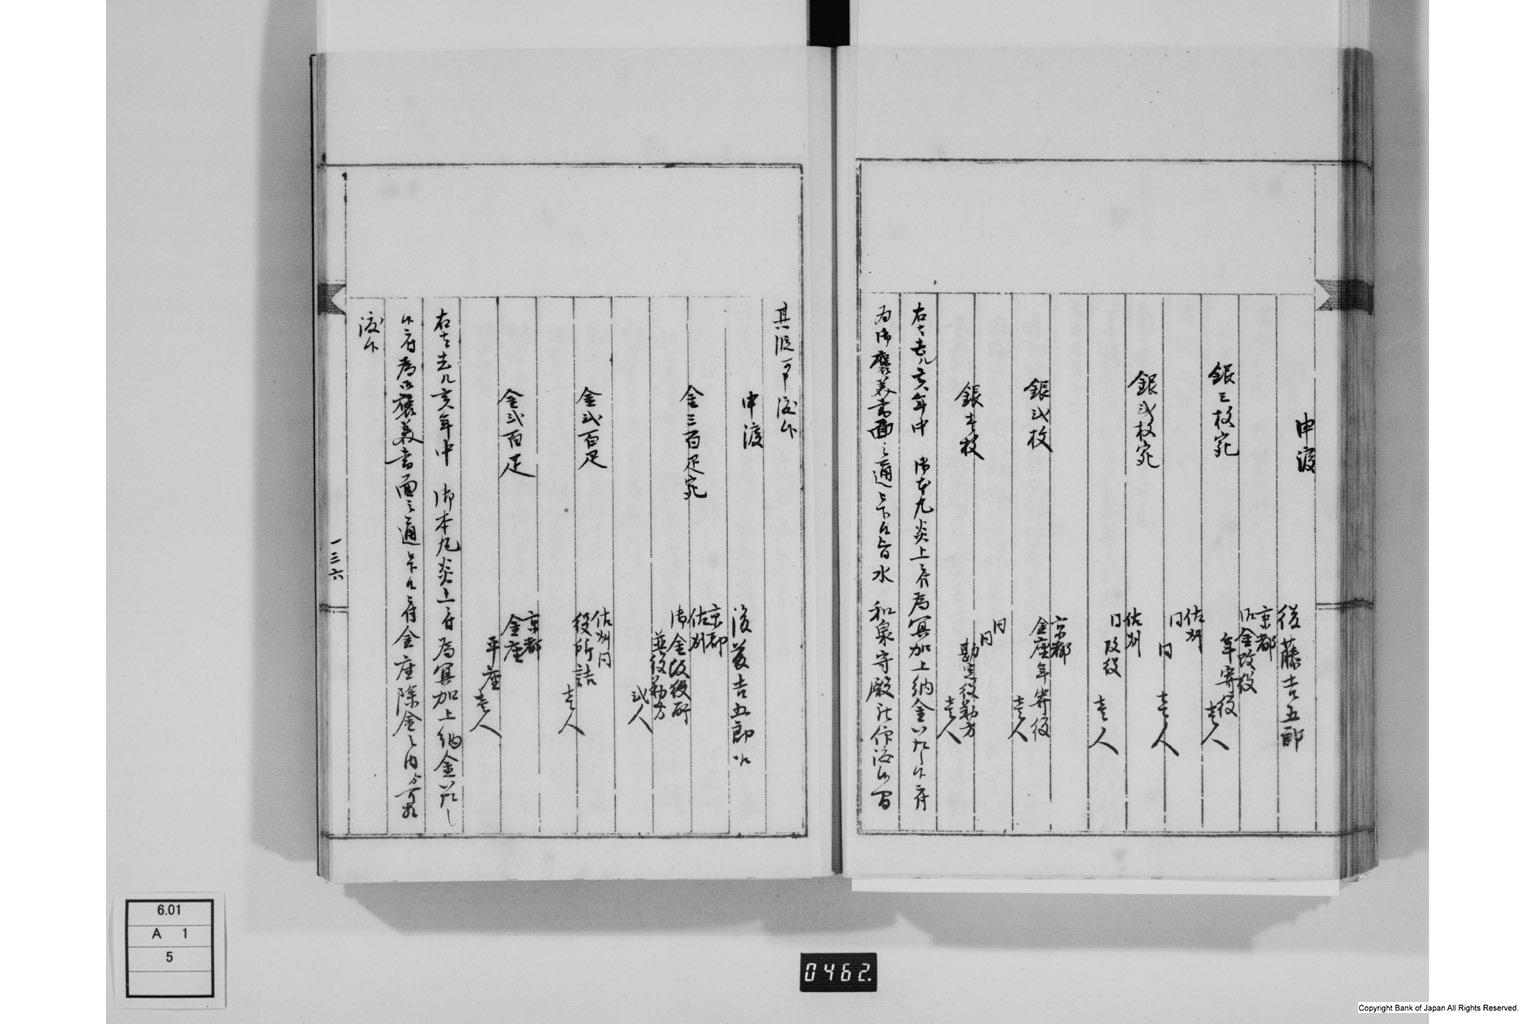 申渡
後藤吉五郎
京都
御金改役
年寄役
壱人
銀三枚宛
佐州
同
同
壱人
銀弐枚宛
佐州
同改役
壱人
京都
金座年寄役
壱人
銀弐枚
同
同
勘定役勤方
壱人
銀壱枚
右者去ル亥年中 御本丸炎上ニ付為冥加上納金いたし候ニ付
為御褒美書面之通被下候旨水 和泉守殿被仰渡候間
其段可申渡候
申渡
後藤吉五郎江
京都
佐州
御金改役所
並役勤方
弐人
金三百疋宛
佐州同
役所詰
壱人
金弐百疋
京都
金座
平座
壱人
金弐百疋
右者去ル亥年中 御本丸炎上ニ付為冥加上納金いたし
候ニ付為御褒美書面之通被下候付金座除金之内
渡候
一三六
6.01
A 1
5
0462.
Copyright Bank of Japan All Rights Reserved.